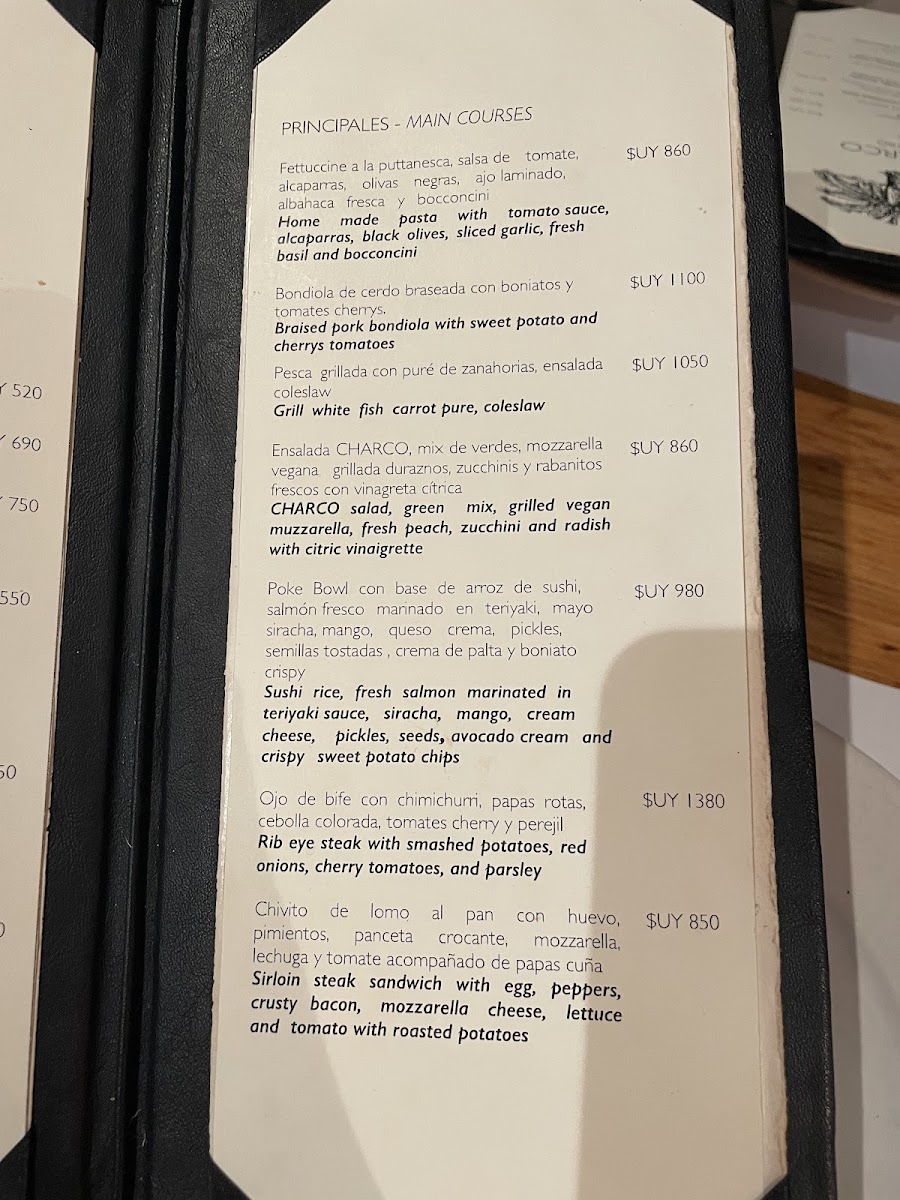 520
690
750
550
PRINCIPALES - MAIN COURSES
Fettuccine a la puttanesca, salsa de tomate, $UY 860
alcaparras, olivas negras, ajo laminado,
albahaca fresca y bocconcini
Home made pasta with tomato sauce,
alcaparras, black olives, sliced garlic, fresh
basil and bocconcini
Bondiola de cerdo braseada con boniatos y $UY 1100
tomates cherrys.
Braised pork bondiola with sweet potato and
cherrys tomatoes
Pesca grillada con puré de zanahorias, ensalada $UY 1050
coleslaw
Grill white fish carrot pure, coleslaw
Ensalada CHARCO, mix de verdes, mozzarella $UY 860
vegana grillada duraznos, zucchinis y rabanitos
frescos con vinagreta cítrica
CHARCO salad, green mix, grilled vegan
muzzarella, fresh peach, zucchini and radish
with citric vinaigrette
Poke Bowl con base de arroz de sushi, $UY 980
salmón fresco marinado en teriyaki, mayo
siracha, mango, queso crema, pickles,
semillas tostadas , crema de palta y boniato
crispy
Sushi rice, fresh salmon marinated in
teriyaki sauce, siracha, mango, cream
cheese, pickles, seeds, avocado cream and
crispy sweet potato chips
Ojo de bife con chimichurri, papas rotas, $UY 1380
cebolla colorada, tomates cherry y perejil
Rib eye steak with smashed potatoes, red
onions, cherry tomatoes, and parsley
Chivito de lomo al pan con huevo, $UY 850
pimientos, panceta crocante, mozzarella,
lechuga y tomate acompañado de papas cuña
Sirloin steak sandwich with egg, peppers,
crusty bacon, mozzarella cheese, lettuce
and tomato with roasted potatoes